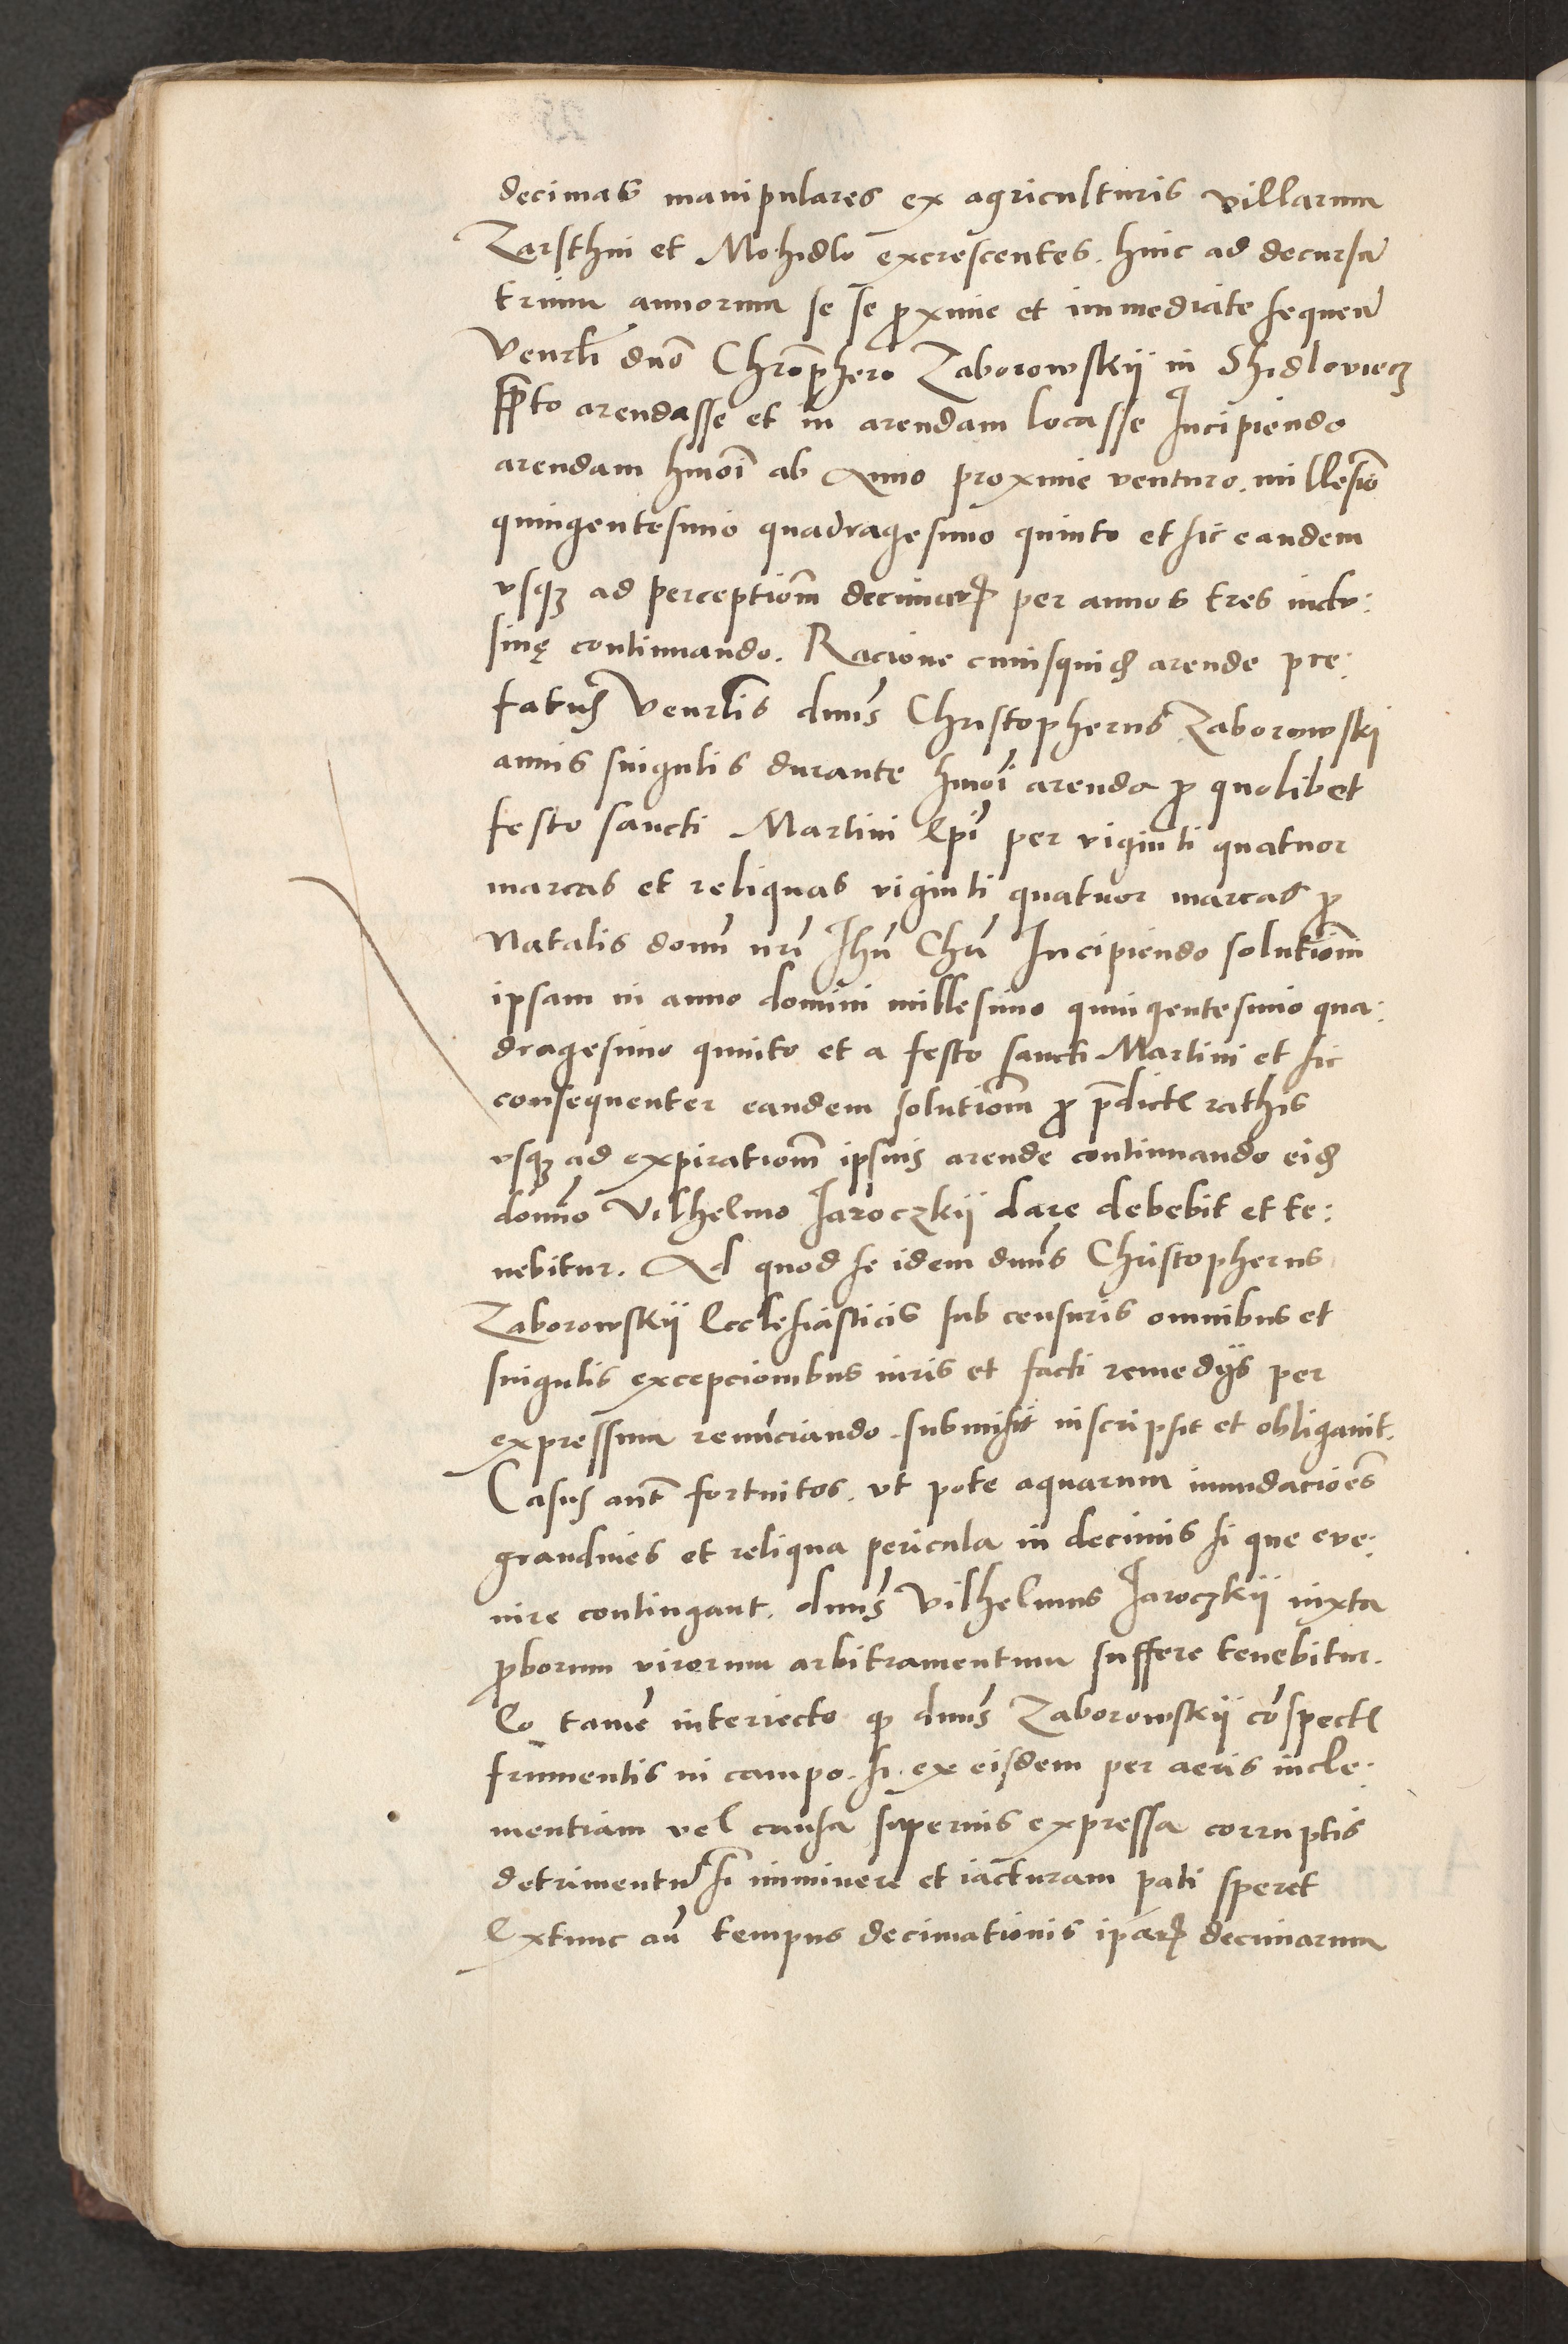 decimas manipulares ex agriculturis villarum
Zarsthin et Mohidlo excrescentes. hinc ad decursū
trium annorum se se ꝓxime et immediate sequeñ
Venrli dno Chrōphero Zaborowskij in Shidloviecz
ppto arendasse et in arendam locasse Incipiendo
arendam hmōi ab Anno proxime venturo. millesīo
quingentesimo quadragesimo quinto et sic eandem
vsqꝫ ad perceptiōm decimarꝝ per annos tres inclu:
siuę continuando. Racione cuiusquid arende pre:
fatus Venrlis dnūs Christopherus Zaborowski
annis singulis durante hmōi arenda ꝓ quolibet
festo sancti Martini Epī per viginti quatuor
marcas et reliquas viginti quatuor marcas ꝓ
Natalis domī nrī Ihū Chrī Incipiendo solutiōm
ipsam in anno domini millesimo quingentesimo qua:
dragesimo quinto et a festo sancti Martini et sic
consequenter eandem solutiōm ꝓ p̄dictꝭ rathis
vsqꝫ ad expiratiōm ipsius arende continuando eid
domīo Vilhelmo Jaroczkij dare debebit et te:
nebitur. Ad quod se idem dnūs Christopherus
Zaborowskij Ecclesiasticis sub censuris omnibus et
singulis excepcionibus iuris et facti remedijs per
expressum renūciando. submisit inscripsit et obligauit.
Casus aūt fortuitos. vt pote aquarum inundaciōes
grandines et reliqua pericula in decimis si que eve:
nire contingant. dnūs Vilhelmus Jaroczkij iuxta
ꝓborum virorum arbitramentum suffere tenebitur.
Eo tamē interiecto ꝙ dnūs Zaborowskij cōspectꝭ
frumentis in campo. si. ex eisdem per aeris incle:
mentiam vel causa superius expressa corruptis
detrimentū si imminere et iacturam pati speret
Extunc añ tempus decimationis ipārꝝ decimarum